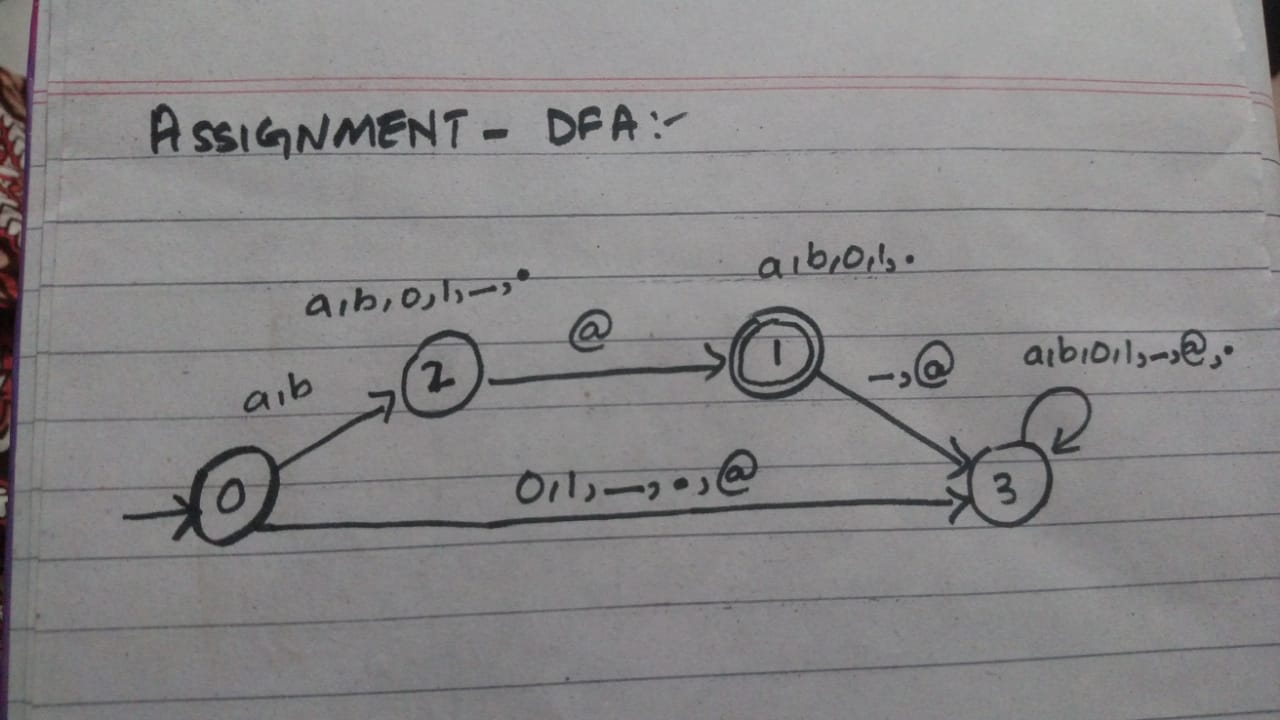 ASSIGNMENT - DFA:-
a,b,0,1,.
a,b,0,1,_,.
@
1
_,@
a,b,0,1,_,@,.
2
a,b
0,1,_,.,@
0
3